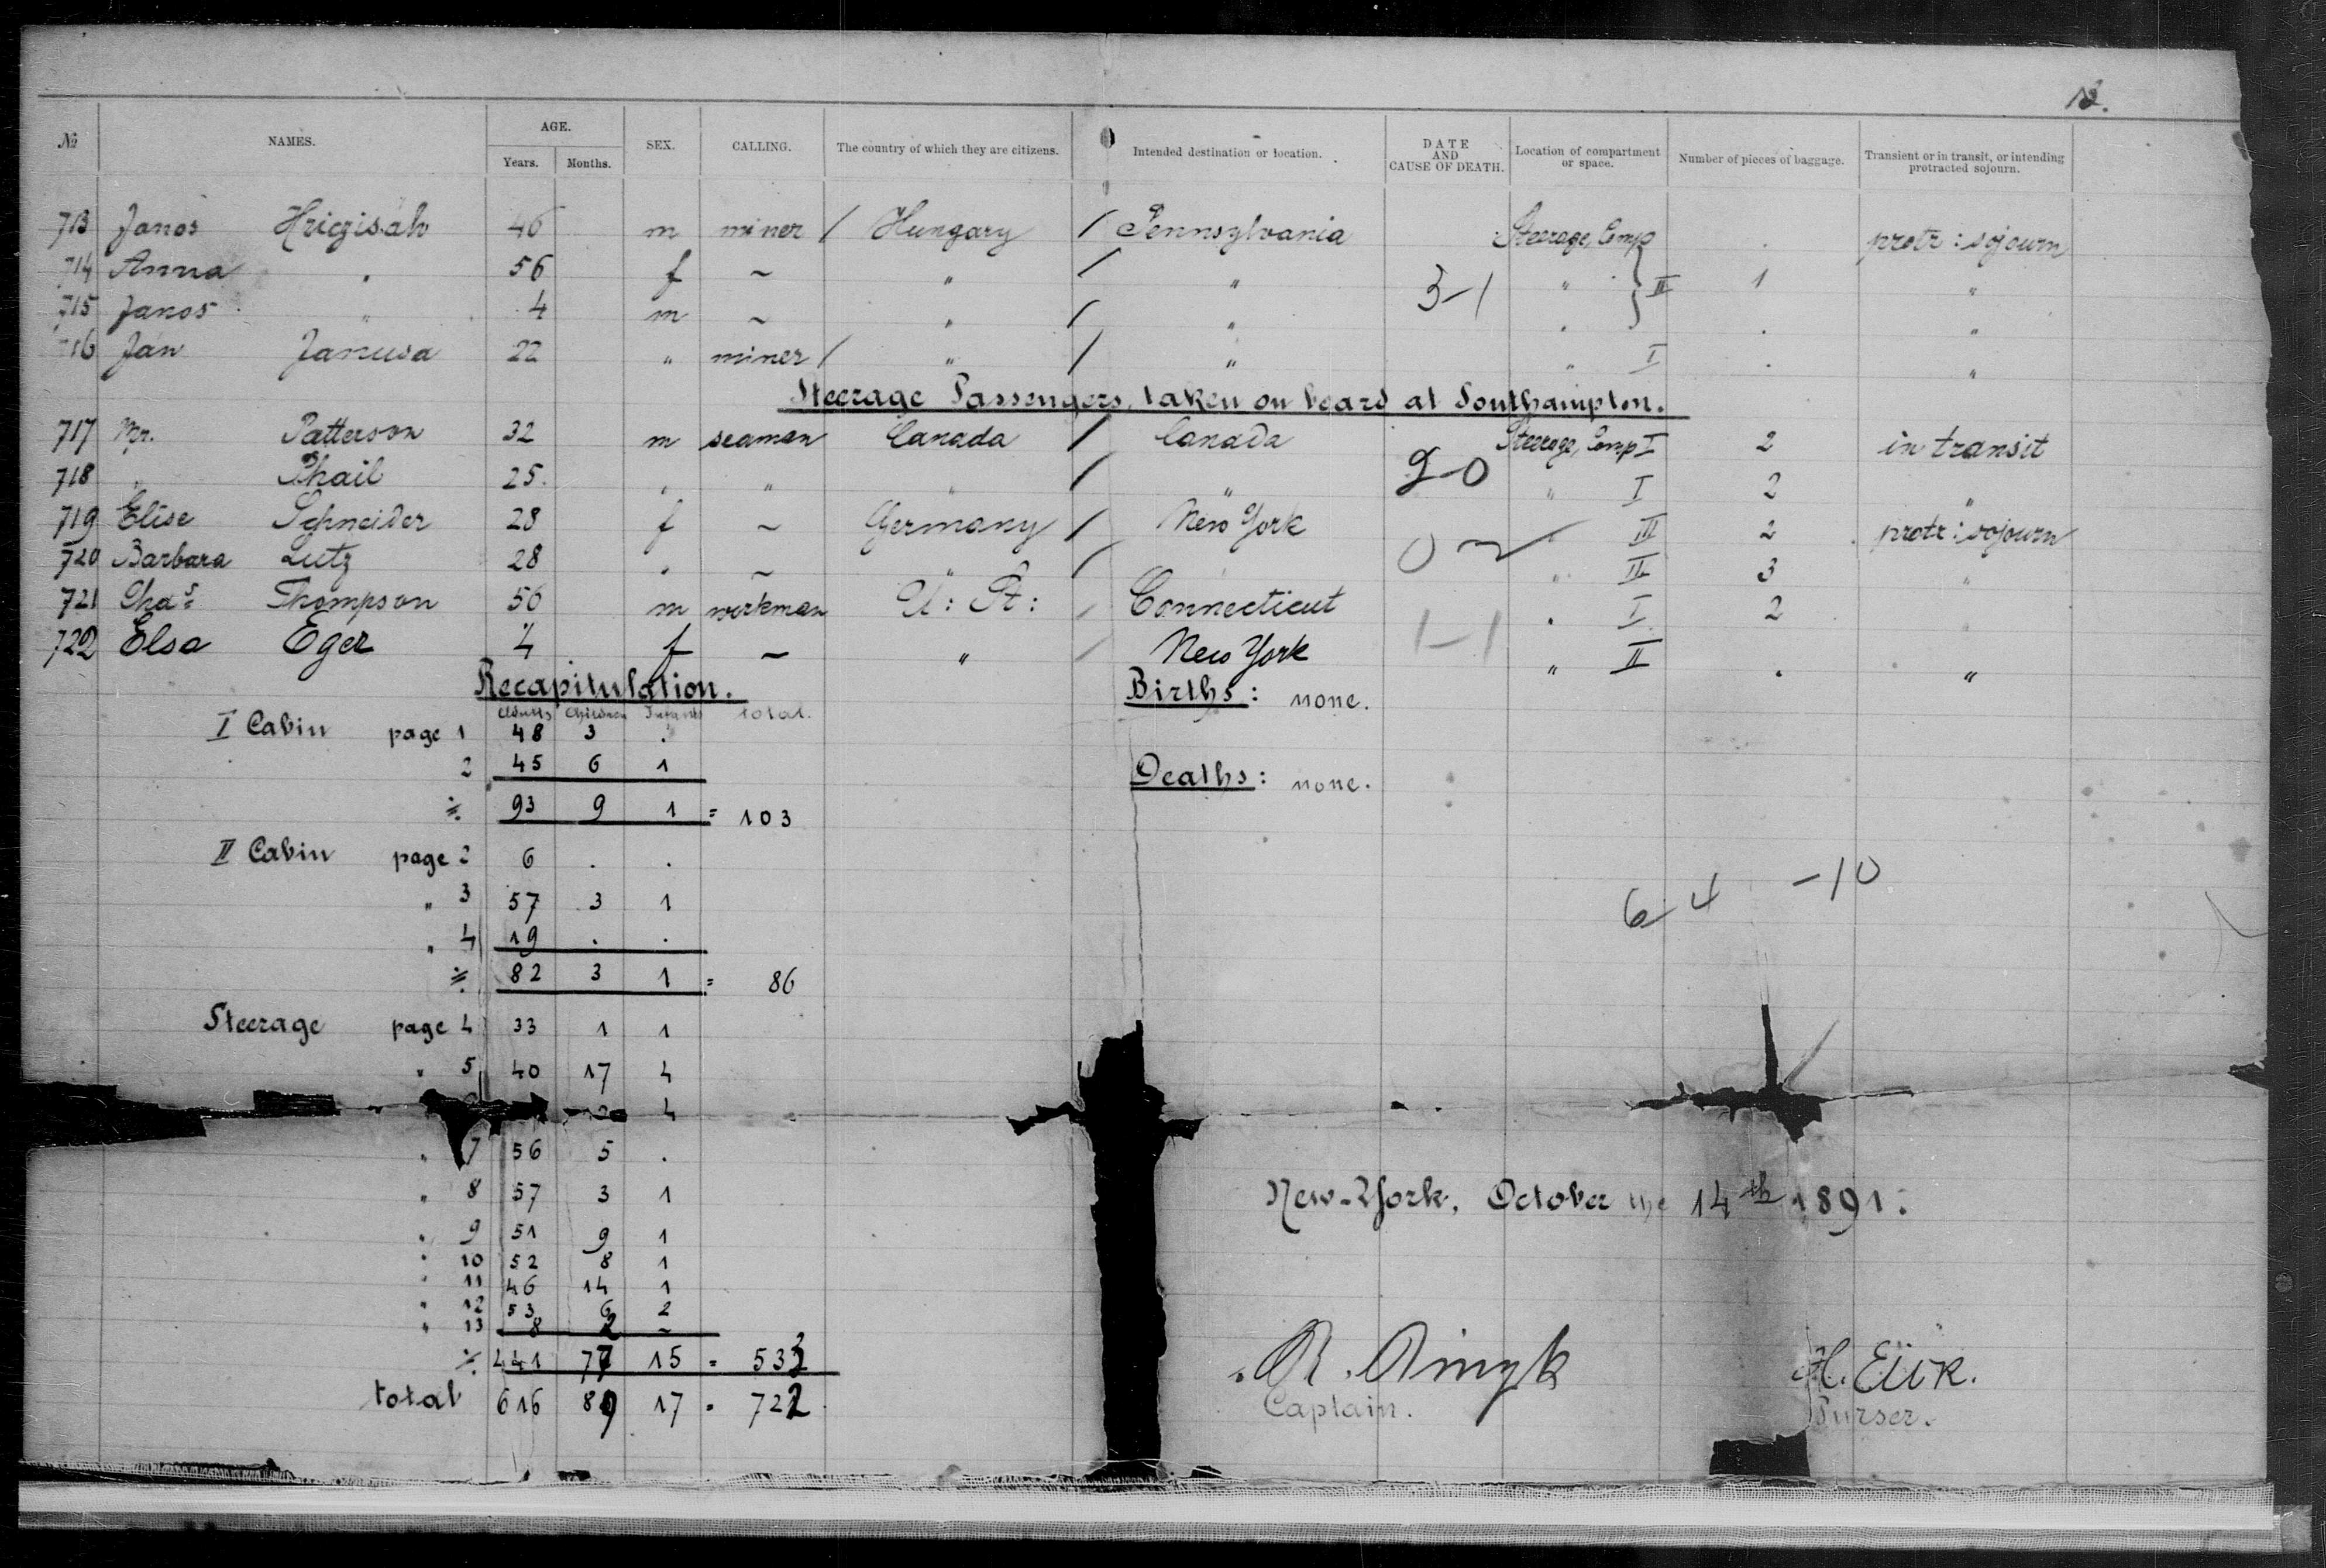 12.
№ NAMES. AGE. Years. Months. SEX. CALLING. The country of which they are citizens. Intended destination or location. DATE AND CAUSE OF DEATH. Location of compartment or space. Number of pieces of baggage. Transient or in transit, or intending protracted sojourn.
713 Janos Hriczisak 46 m miner / Hungary / Pennsylvania Steerage, Comp . protr : sojourn
714 Anna " 56 f ~ " / " 3-1 " } II 1 "
715 Janos " 4 m ~ " / " " . "
716 Jan Janusa 22 " miner / " / " " I . "
Steerage Passengers, taken on board at Southampton.
717 Mr. Patterson 32 m seaman Canada / Canada Steerage, Comp I 2 in transit
718 " Phail 25. " " " / " 2-0 " I 2 "
719 Elise Schneider 28 f ~ Germany / New York " III 2 protr : sojourn
720 Barbara Lutz 28 " ~ " / " 0 " II 3 "
721 Chas Thompson 56 m workman U : St : / Connecticut " I 2 "
722 Elsa Eger 4 f ~ " / New York 1-1 " II . "
Recapitulation. Births : none.
Adults Children Infants total.
I Cabin page 1 48 3 .
2 45 6 1 Deaths : none.
93 9 1 = 103
II Cabin page 2 6 . .
" 3 57 3 1
6-4 -10
" 4 19 . .
82 3 1 = 86
Steerage page 4 33 1 1
" 5 40 17 4
4
" 7 56 5 .
" 8 57 3 1 New-York, October the 14th 1891.
" 9 51 9 1
" 10 52 8 1
" 11 46 14 1
" 12 53 6 2
" 13 8 2 ~
441 77 15 = 533
total 616 89 17 = 722
R. Ringk H. Eück.
Captain. Purser.